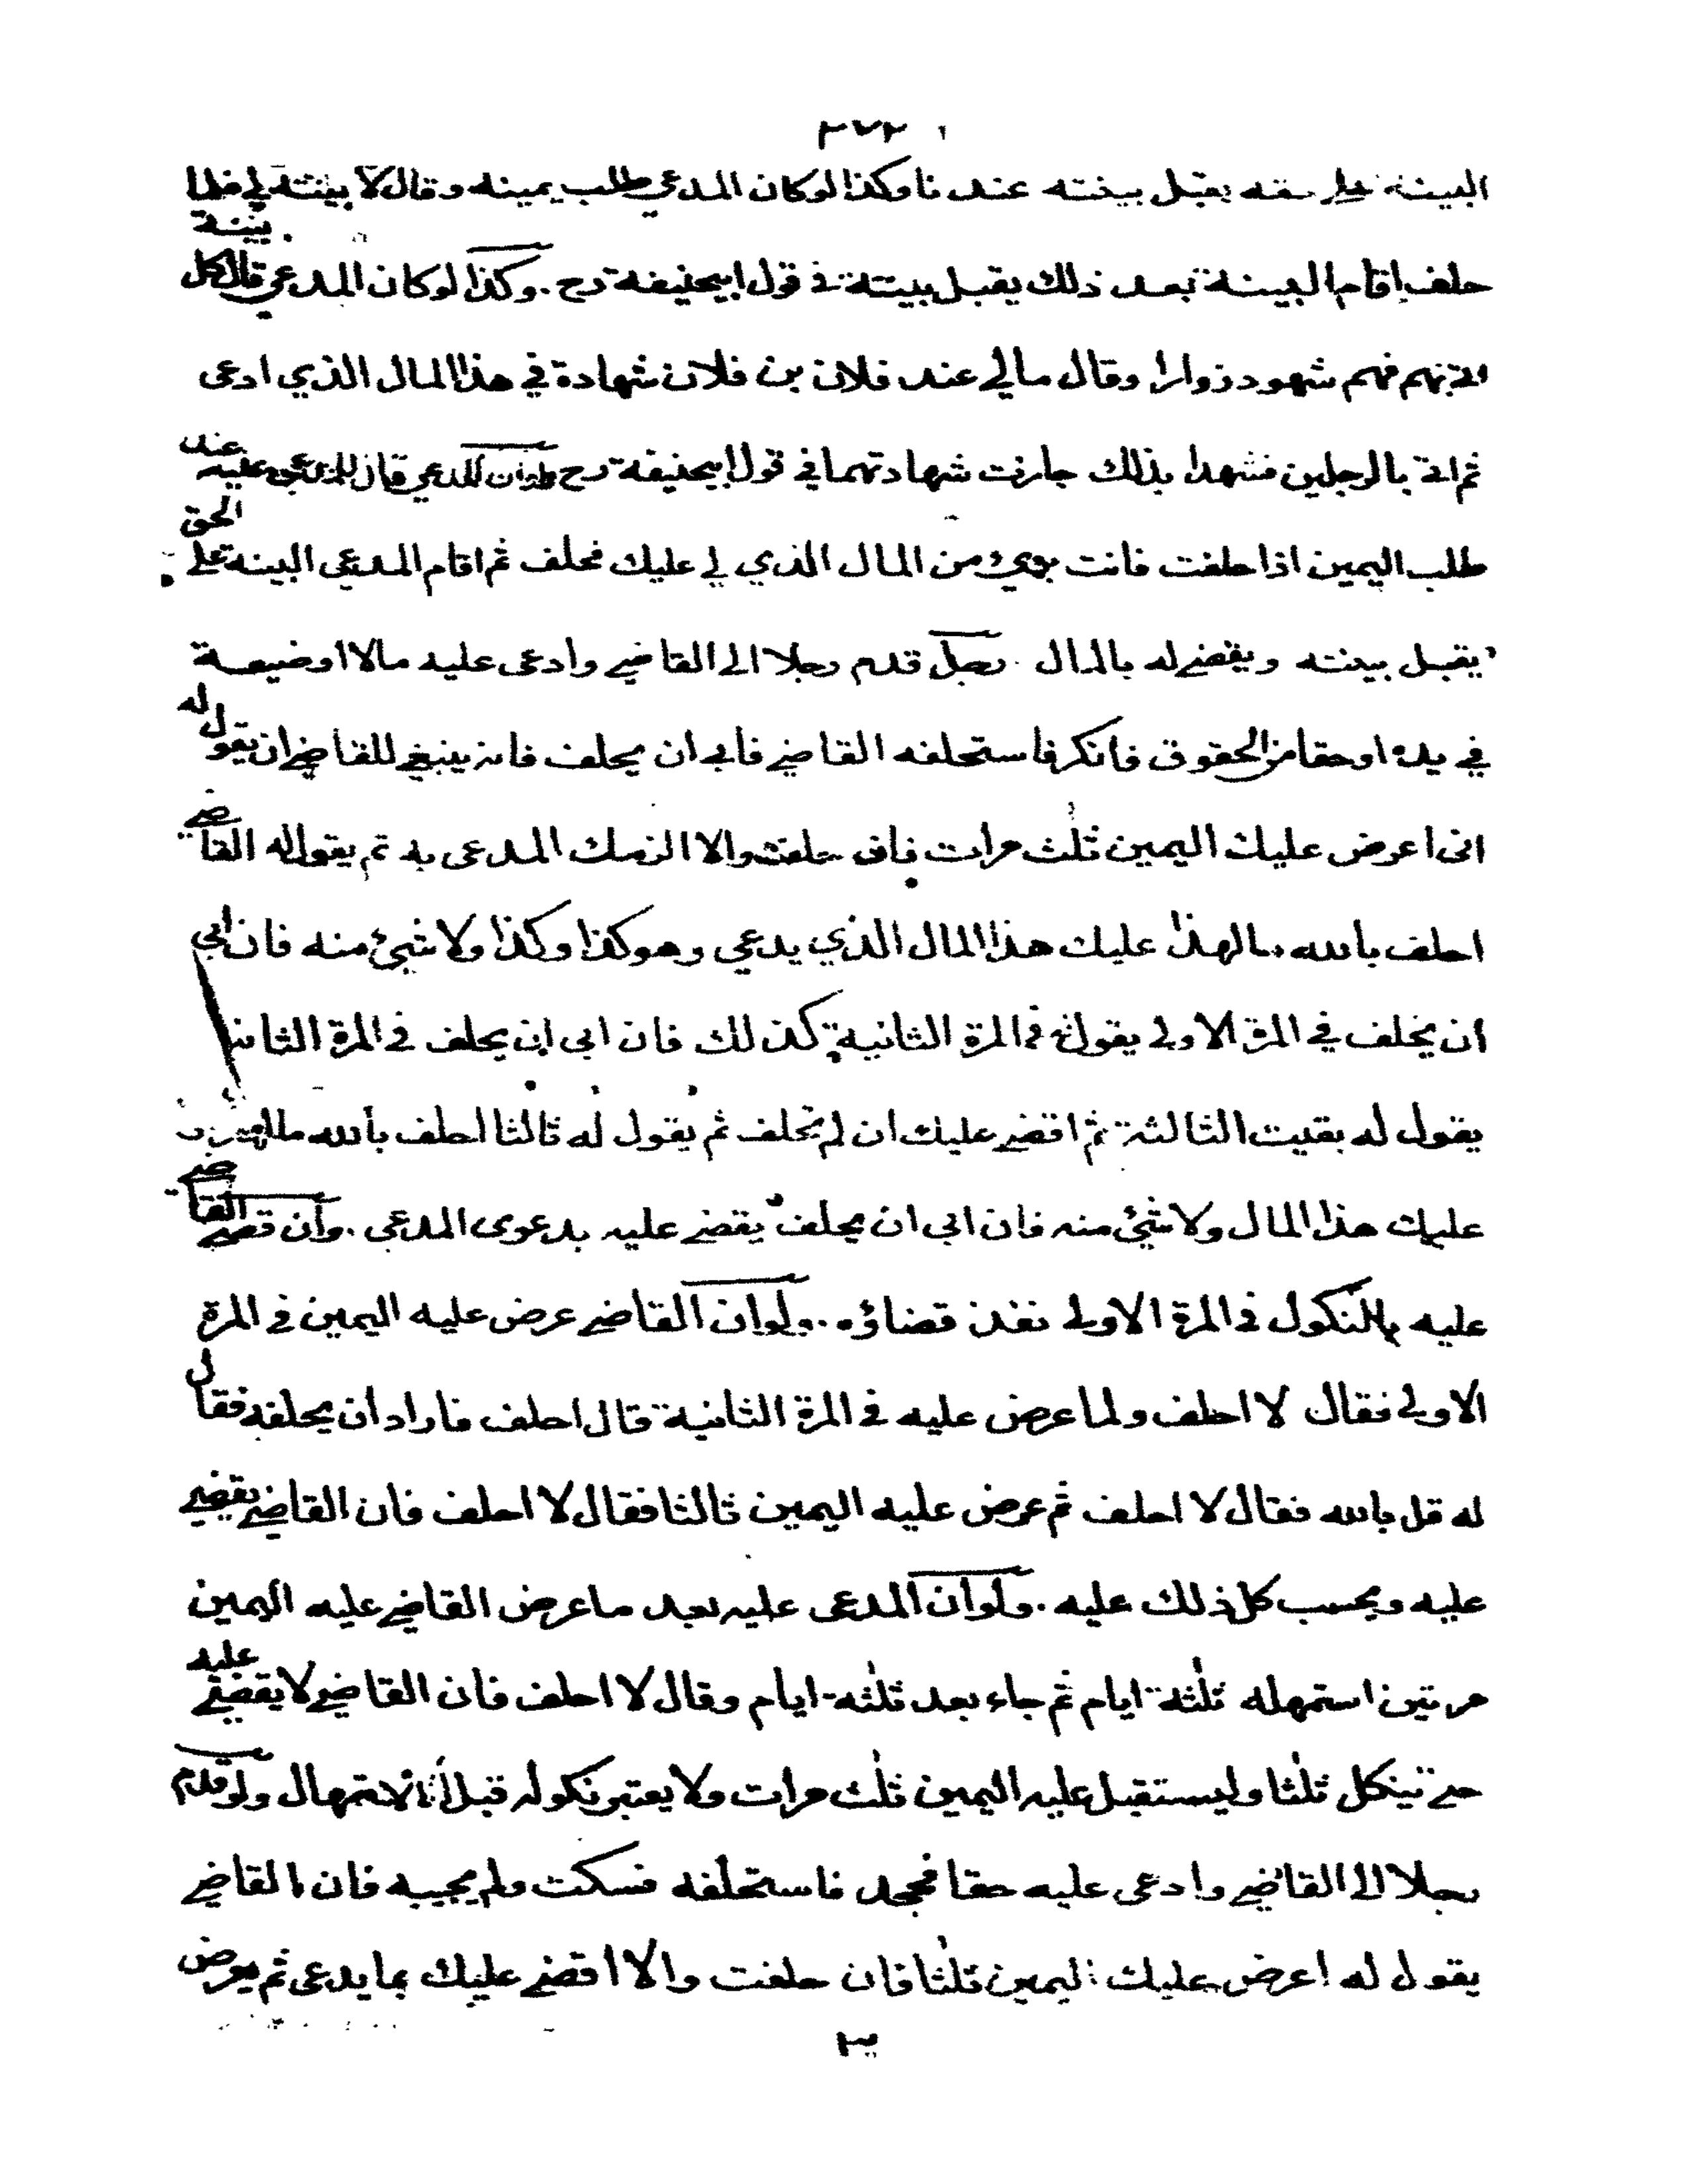 ٣٧٢
البينة على حقه يقبل بينته عندنا وكذا لو كان المدعي طلب يمينه وقال لا بينة لي فلما
حلف اقام البينة بعد ذلك يقبل بينته في قول ابيحنيفة رح . وكذا لو كان المدعي قال كل بينة
اتى بهم فهم شهود زوارا وقال مالي عند فلان بن فلان شهادة في هذا المال الذي ادعى
ثم اتى بالرجلين فشهدا بذلك جازت شهادتهما في قول ابيحنيفة رح ولو ان المدعي قال للمدعى عليه عند
طلب اليمين اذا حلفت فانت بريء من المال الذي لي عليك فحلف ثم اقام المدعي البينة على الحق
يقبل بينته ويقضى له بالمال . رجل قدم رجلا الى القاضي وادعى عليه مالا او ضيعة
في يده او حقا من الحقوق فانكر فاستحلفه القاضي فأبى ان يحلف فانه ينبغي للقاضي ان يقول له
انى اعرض عليك اليمين ثلث مرات فان حلفت والا الزمك المدعى به ثم يقول له القاضي
احلف بالله ما لهذا عليك هذا المال الذي يدعي وهو كذا وكذا ولا شيئ منه فان ابي
ان يحلف في المرة الاولى يقول في المرة الثانية كذلك فان ابى ان يحلف في المرة الثانية
يقول له بقيت الثالثة ثم اقضي عليك ان لم تحلف ثم يقول له ثالثا احلف بالله ما لهذا
عليك هذا المال ولا شيئ منه فان ابى ان يحلف يقضي عليه بدعوى المدعي . وان قضى القاضي
عليه بالنكول في المرة الاولى نفذ قضاؤه . ولو ان القاضي عرض عليه اليمين في المرة
الاولى فقال لا احلف ولما عرض عليه في المرة الثانية قال احلف فاراد ان يحلفه فقال
له قل بالله فقال لا احلف ثم عرض عليه اليمين ثالثا فقال لا احلف فان القاضي يقضي
عليه ويحسب كل ذلك عليه . ولو ان المدعى عليه بعد ما عرض القاضي عليه اليمين
مرتين استمهله ثلثة ايام ثم جاء بعد ثلثة ايام وقال لا احلف فان القاضي لا يقضي عليه
حتى ينكل ثلثا وليستقبل عليه اليمين ثلث مرات ولا يعتبر نكوله قبل الاستمهال ولو قدم
رجلا الى القاضي وادعى عليه حقا فجحد فاستحلفه فسكت ولم يجيبه فان القاضي
يقول له اعرض عليك اليمين ثلثا فان حلفت والا اقضي عليك بما يدعى ثم يعرض